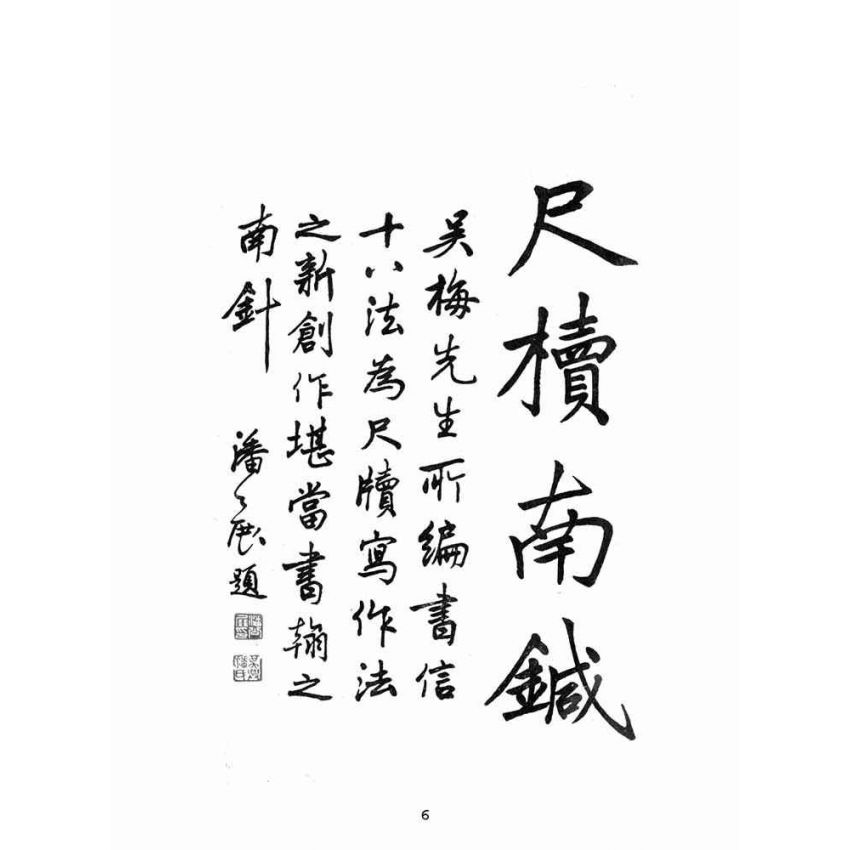 尺牘南鍼
吳梅先生所編書信
十八法為尺牘寫作法
之新創作堪當書翰之
南針
潘公展題
6